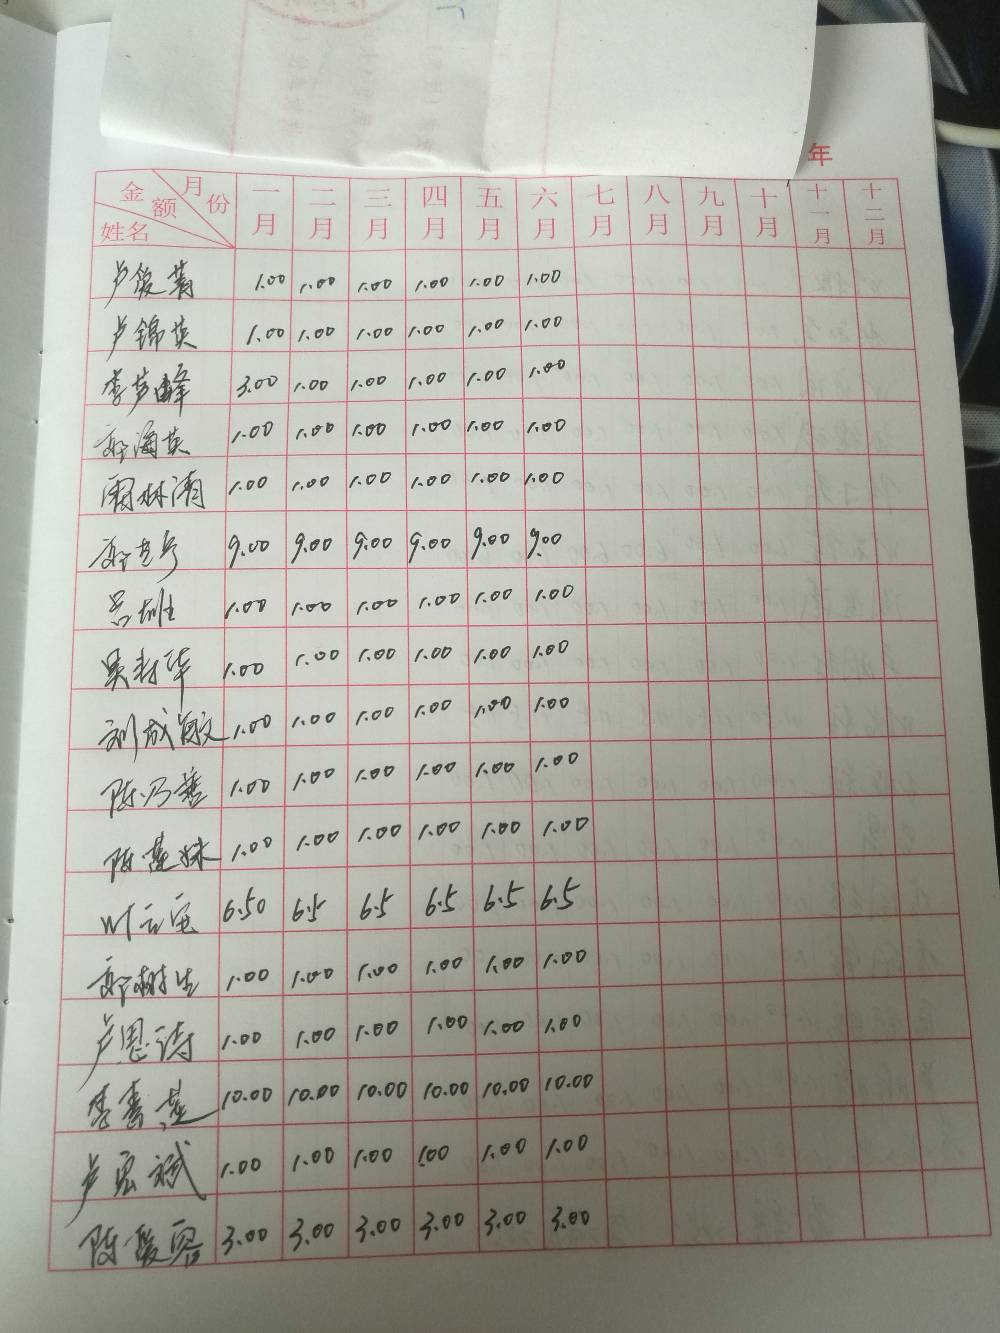 年
金额 月份 姓名 一月 二月 三月 四月 五月 六月 七月 八月 九月 十月 十一月 十二月
卢俊菁 1.00 1.00 1.00 1.00 1.00 1.00
卢锦英 1.00 1.00 1.00 1.00 1.00 1.00
李芦峰 3.00 1.00 1.00 1.00 1.00 1.00
郭海英 1.00 1.00 1.00 1.00 1.00 1.00
周林清 1.00 1.00 1.00 1.00 1.00 1.00
9.00 9.00 9.00 9.00 9.00 9.00
1.00 1.00 1.00 1.00 1.00 1.00
吴村华 1.00 1.00 1.00 1.00 1.00 1.00
刘成 1.00 1.00 1.00 1.00 1.00 1.00
陈乃莲 1.00 1.00 1.00 1.00 1.00 1.00
陈莲妹 1.00 1.00 1.00 1.00 1.00 1.00
叶云宝 6.50 6.5 6.5 6.5 6.5 6.5
郭树生 1.00 1.00 1.00 1.00 1.00 1.00
卢恩诗 1.00 1.00 1.00 1.00 1.00 1.00
李秀莲 10.00 10.00 10.00 10.00 10.00 10.00
卢宏斌 1.00 1.00 1.00 1.00 1.00 1.00
陈爱容 3.00 3.00 3.00 3.00 3.00 3.00